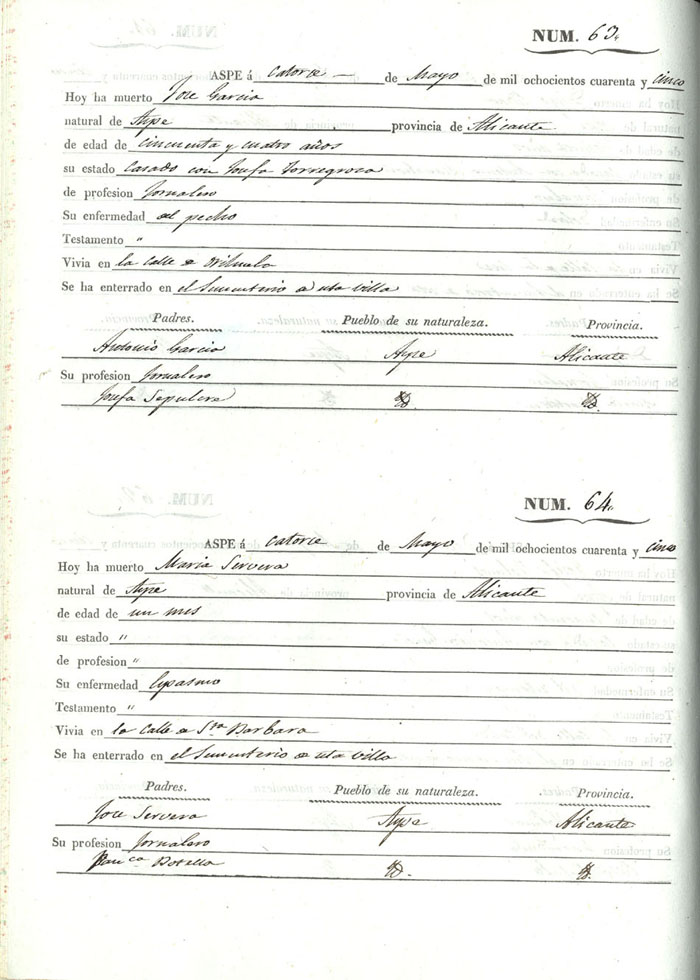 NUM. 63.
ASPE á catorce — de Mayo de mil ochocientos cuarenta y cinco
Hoy ha muerto Jose Garcia
natural de Aspe provincia de Alicante
de edad de cincuenta y cuatro años
su estado Casado con Josefa Torregrosa
de profesion Jornalero
Su enfermedad al pecho
Testamento "
Vivia en la calle de Orihuela
Se ha enterrado en el Sementerio de esta villa
Padres. Pueblo de su naturaleza. Provincia.
Antonio Garcia Aspe Alicante
Su profesion Jornalero
Josefa Sepulcre
NUM. 64.
ASPE á catorce de Mayo de mil ochocientos cuarenta y cinco
Hoy ha muerto Maria Servera
natural de Aspe provincia de Alicante
de edad de un mes
su estado "
de profesion "
Su enfermedad Espasmo
Testamento "
Vivia en la calle de Sta Barbara
Se ha enterrado en el Sementerio de esta villa
Padres. Pueblo de su naturaleza. Provincia.
Jose Servera Aspe Alicante
Su profesion Jornalero
Franca Botella